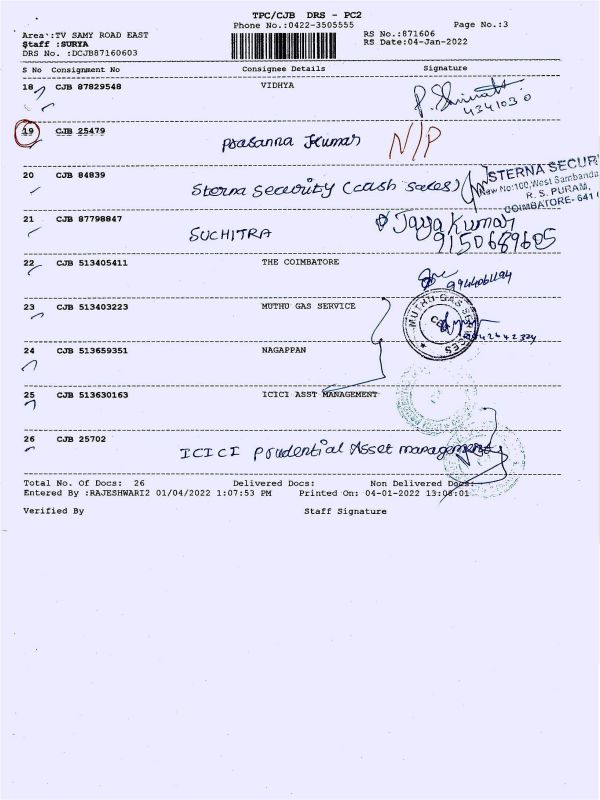 TPC/CJB DRS - PC2
Phone No.:0422-3505555 Page No.:3
Area :TV SAMY ROAD EAST RS No.:871606
Staff :SURYA RS Date:04-Jan-2022
DRS No. :DCJB87160603
S No Consignment No Consignee Details Signature
18 CJB 87829548 VIDHYA
4341030
19 CJB 25479 Prasanna Kumar N/P
20 CJB 84839 Sterna Security (cash sales) STERNA SECUR
New No:100,West Sambanda
R. S. PURAM,
COIMBATORE- 641
21 CJB 87798847 SUCHITRA Jaya Kumar
9150689605
22 CJB 513405411 THE COIMBATORE
23 CJB 513403223 MUTHU GAS SERVICE MUTHU GAS SERVICES
24 CJB 513659351 NAGAPPAN
25 CJB 513630163 ICICI ASST MANAGEMENT
26 CJB 25702 ICICI prudential Asset management
Total No. Of Docs: 26 Delivered Docs: Non Delivered Docs:
Entered By :RAJESHWARI2 01/04/2022 1:07:53 PM Printed On: 04-01-2022 13:08:01
Verified By Staff Signature